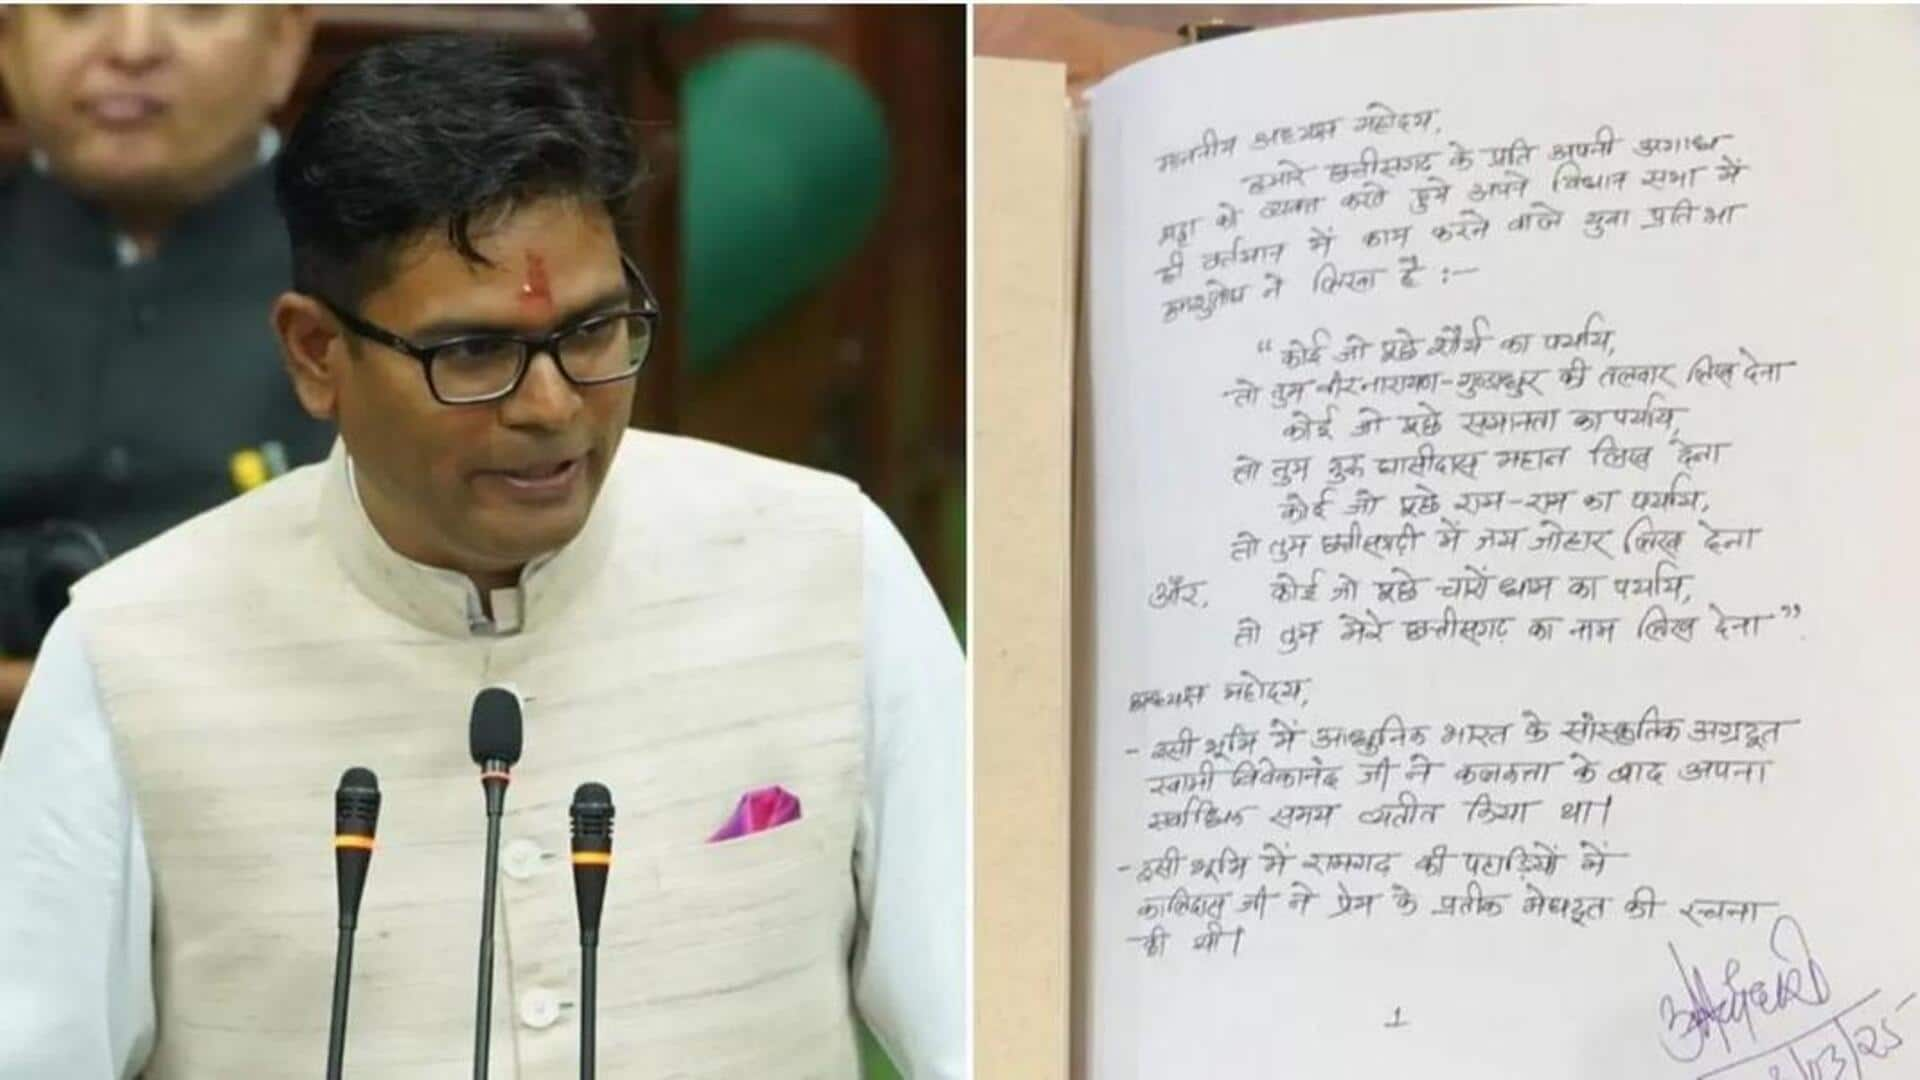 माननीय अध्यक्ष महोदय,
हमारे छत्तीसगढ़ के प्रति अपनी अगाध
श्रद्धा को व्यक्त करते हुये अपने विधान सभा में
ही वर्तमान में काम करने वाले युवा प्रतिभा
आशुतोष ने लिखा है :-
“कोई जो पूछे शौर्य का पर्याय,
तो तुम वीरनारायण-गुण्डाधुर की तलवार लिख देना
कोई जो पूछे समानता का पर्याय,
तो तुम गुरु घासीदास महान लिख देना
कोई जो पूछे राम-राम का पर्याय,
तो तुम छत्तीसगढ़ी में जय जोहार लिख देना
और, कोई जो पूछे चारों धाम का पर्याय,
तो तुम मेरे छत्तीसगढ़ का नाम लिख देना”
अध्यक्ष महोदय,
- इसी भूमि में आधुनिक भारत के सांस्कृतिक अग्रदूत
स्वामी विवेकानंद जी ने कलकत्ता के बाद अपना
सर्वाधिक समय व्यतीत किया था।
- इसी भूमि में रामगढ़ की पहाड़ियों में
कालिदास जी ने प्रेम के प्रतीक मेघदूत की रचना
की थी।
1
/03/25